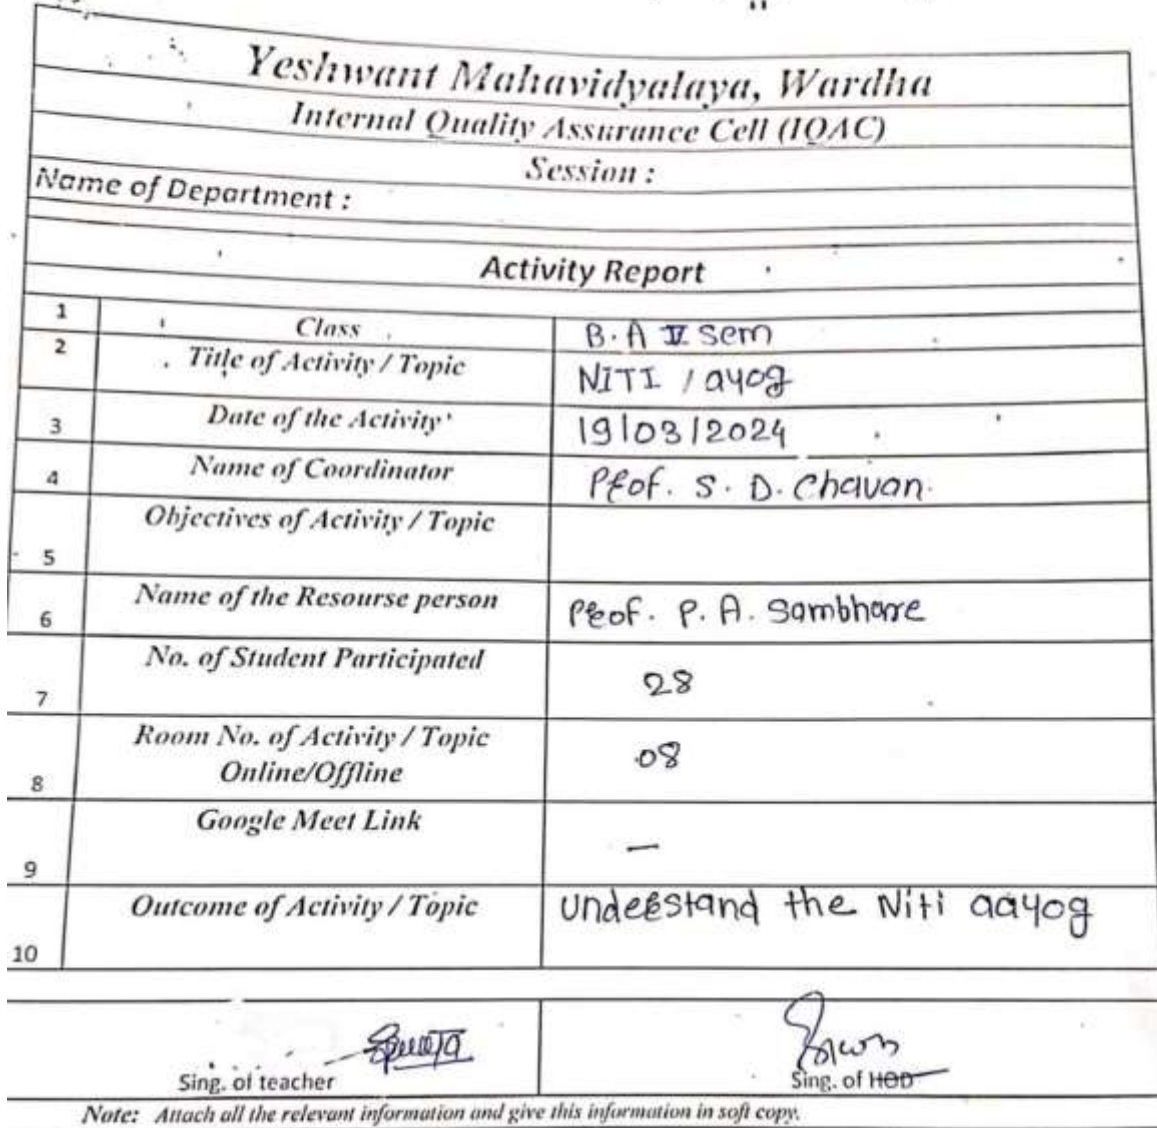 Yeshwant Mahavidyalaya, Wardha
Internal Quality Assurance Cell (IQAC)
Session :
Name of Department :
Activity Report
1 Class B.A IV sem
2 Title of Activity / Topic NITI / ayog
3 Date of the Activity 19/03/2024
4 Name of Coordinator Prof. S. D. Chavan.
Objectives of Activity / Topic
5
Name of the Resourse person Prof. P. A. Sambhare
6
No. of Student Participated 28
7
Room No. of Activity / Topic 08
Online/Offline
8
Google Meet Link —
9
Outcome of Activity / Topic Understand the Niti aayog
10
Sing. of teacher Sing. of HOD
Note: Attach all the relevant information and give this information in soft copy.